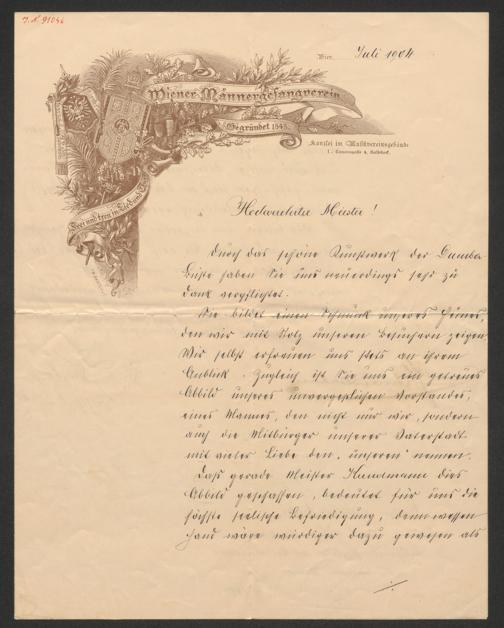 J. N. 91046
Wien, Juli 1904
Wiener Männergesangverein
Gegründet 1843.
Kanzlei im Musikvereinsgebäude
Frei und treu in Lied und Tat
Hochverehrter Meister!
Durch das schöne Kunstwerk der Dumba-
büste haben Sie uns neuerdings sehr zu
Dank verpflichtet.
Sie bildet einen Schmuck unseres Heimes,
den wir mit Stolz unseren Besuchern zeigen.
Wir selbst erfreuen uns stets an ihrem
Anblick. Zugleich ist Sie uns ein getreues
Abbild unseres unvergeßlichen Vorstandes,
eines Mannes, den nicht nur wir, sondern
auch die Mitbürger unserer Vaterstadt
mit vieler Liebe den „unseren" nennen.
Daß gerade Meister Kundmann dies
Abbild geschaffen, bedeutet für uns die
höchste seelische Befriedigung, denn wessen
Hand wäre würdiger dazu gewesen als
./.